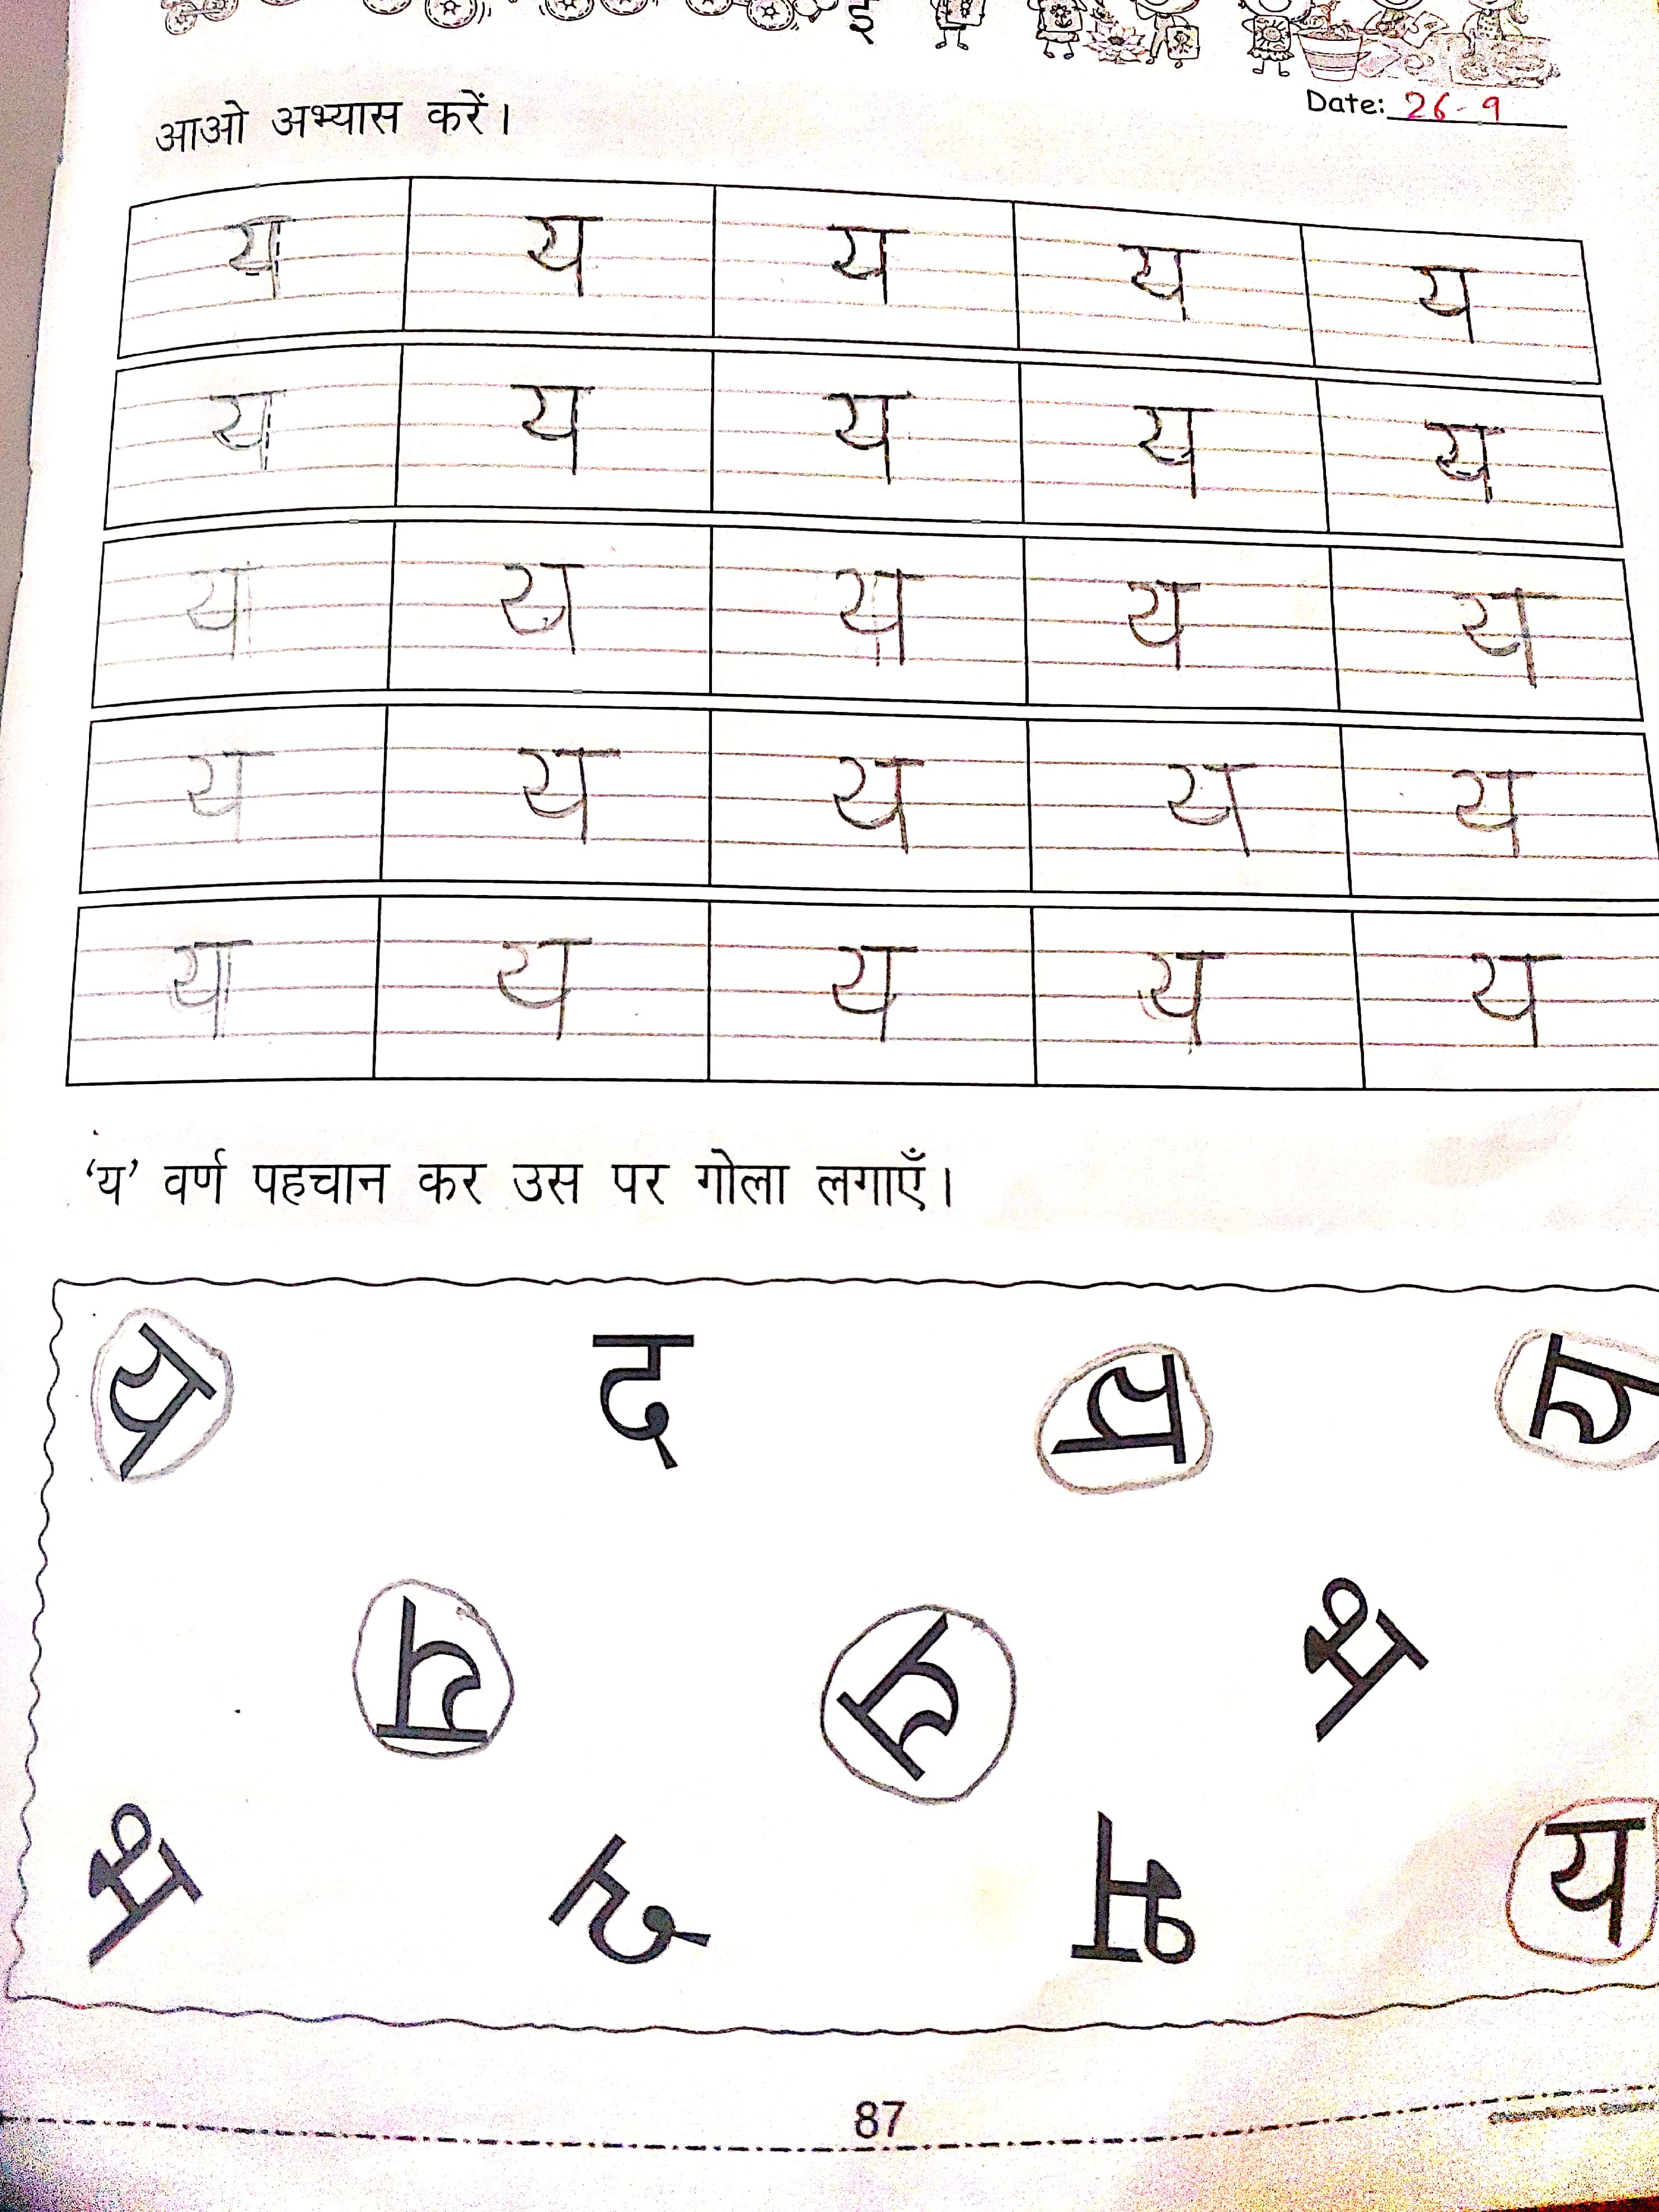 ई
आओ अभ्यास करें।
Date: 26-9
य य य य य
य य य य य
य य य य य
य य य य य
य य य य य
‘य’ वर्ण पहचान कर उस पर गोला लगाएँ।
य द य य
य य भ
भ द भ य
87